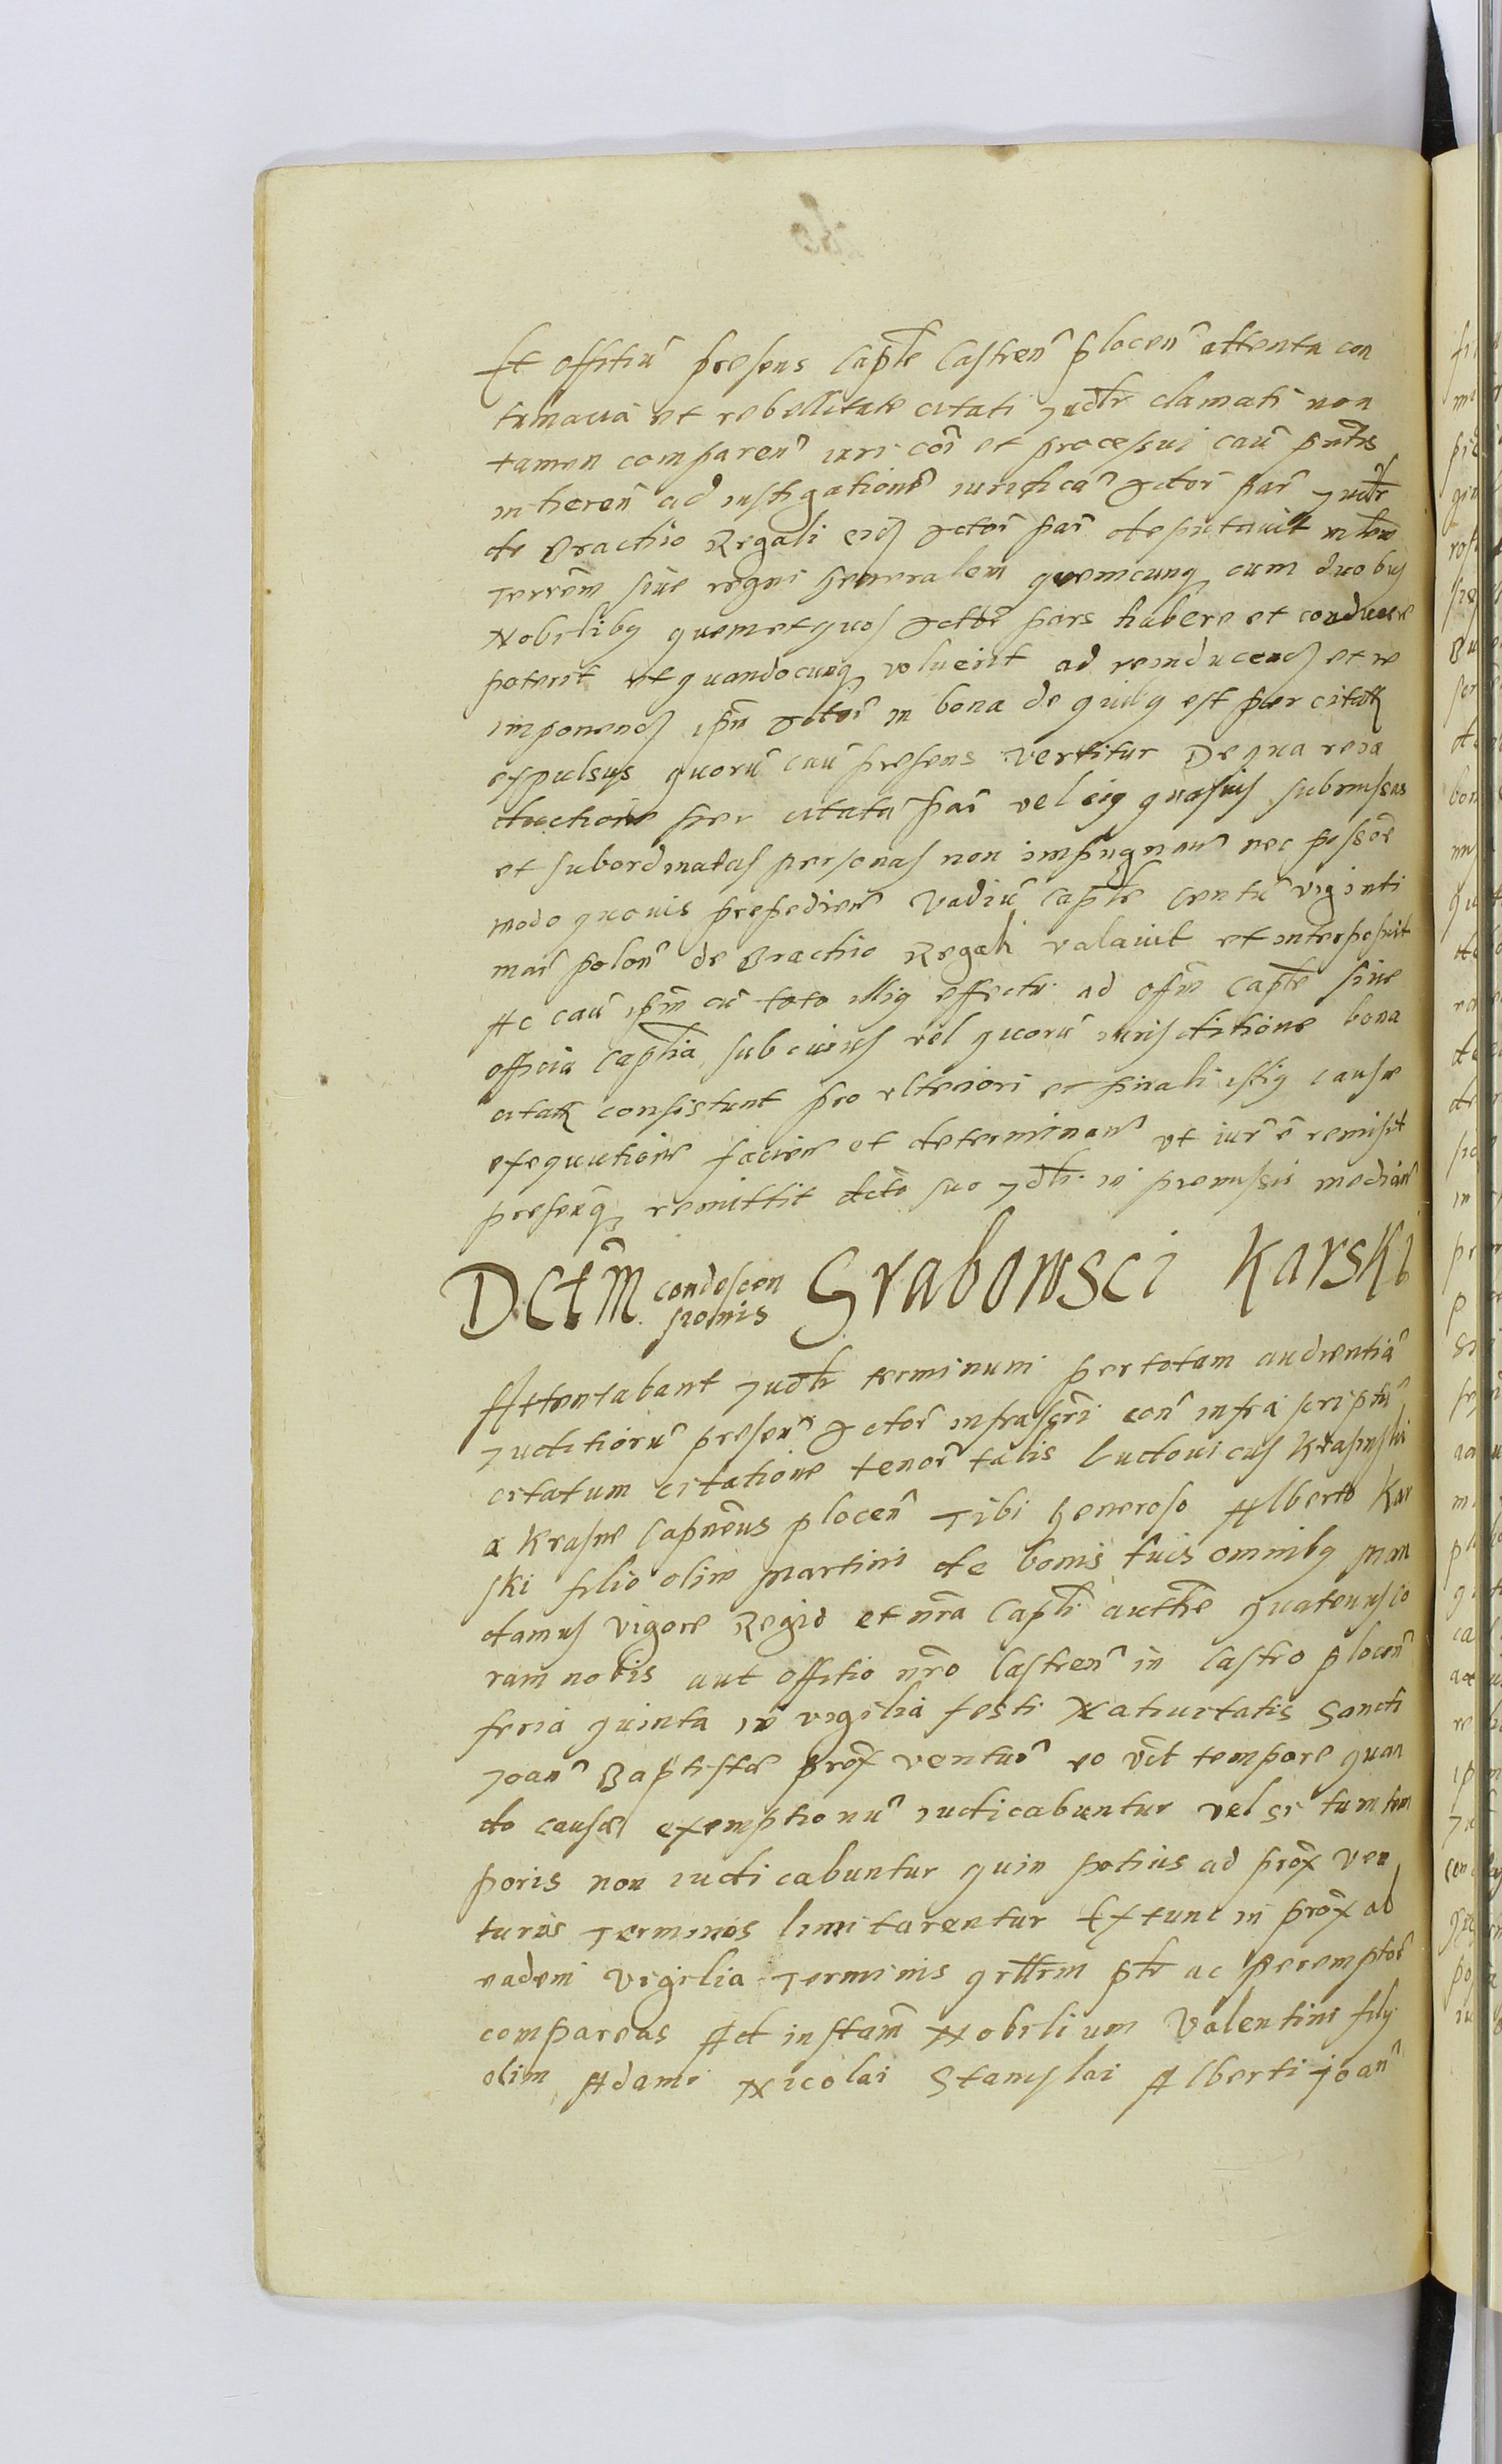 Et offitiũ presens Capłe Castren̄ plocen̄ attenta con
tumacia et rebellitate citati Judłr clamati non
tamen comparen̄ iuri cõi et processui cau͂ pn̄tis
inheren̄ ad instigationẽ iuridica͂ Actor͂ par͂ Judłr
de Brachio Regali eid͂ Actor͂ par͂ deputauit
Terrẽm siue regni Generalem quemcunq; cum duobus
Nobilibq quem et quos Actor͂ pars habere et conducere
poterit et quandocunq; voluerit ad reinducend͂ et re
imponend͂ ipm̄ Actor͂ in bona de quibq est per citatũ
expulsus quorũ cau͂ presens vertitur De qua rein
ductione per citata͂ par͂ vel eiq quasuis submissas
et subordinatas personas non impugnan͂ nec possõe
modo quouis prepedien͂ Vadiũ Capłe Centũ viginti
mar͂ polon͂ de Brachio Regali valauit et interposuit
Ac cau͂ ipm̄ cũ toto illiq effectu ad offm̄ Capłe siue
officia Capłia sub cuius vel quorũ iurisditione bona
citatũ consistunt pro vlteriori et finali istiq causæ
exequutione facien͂ et determinan͂ vt iur͂ ẽ remisit
presentq; remittit dcto suo Jdłi in premissis median͂
Dctm̃ condescen
sionis Grabowsci Karski
Attentabant Judłr terminum per totam audientiã
Juditiorũ presen͂ Actor͂ infrascr̃i con͂ infra scriptũ
citatum citatione tenor͂ talis Ludouicus Krasinski
a Krasne Capneũs plocen̄ Tibi Generoso Alberto Kar
ski filio olim Martini de bonis tuis omnibq man
damus vigore Regia et nr̃a Capłi authẽ quatenus co
ram nobis aut offitio nr̃o Castren͂ in Castro plocen͂
feria quinta in vigilia festi Natiuitatis Sancti
Joan͂ Baptistæ prox͂ ventur͂ eo vel tempore quan
do causæ exemptionũ iudicabuntur vel si tum tem
poris non iudicabuntur quin potius ad prox͂ ven
turos Terminos limitarentur Ex tunc in prox͂ ab
eadem vigilia Terminis personałr ac Peremptor͂
compareas Ad instam͂ Nobilium Valentini filij
olim Adami Nicolai Stanislai Alberti Joan͂